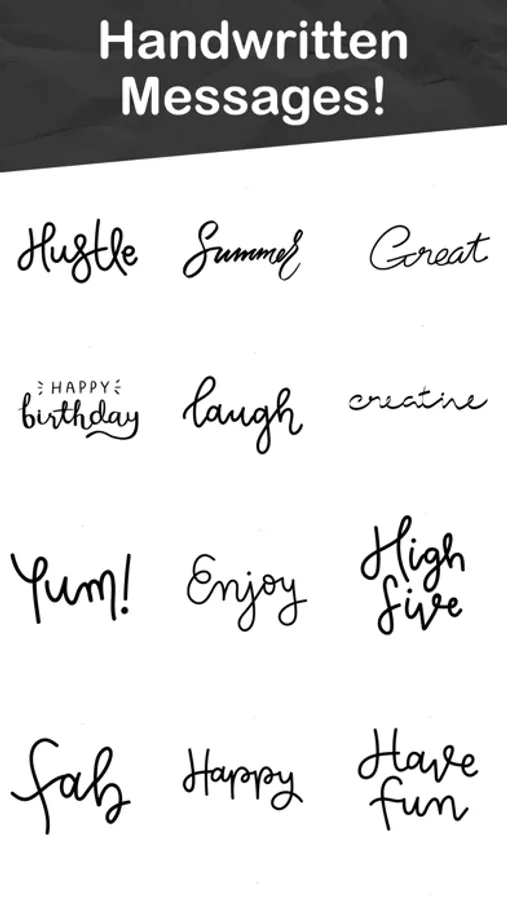 Handwritten
Messages!
Hustle
Summer
Great
HAPPY
birthday
laugh
creative
Yum!
Enjoy
High
five
fab
Happy
Have
fun